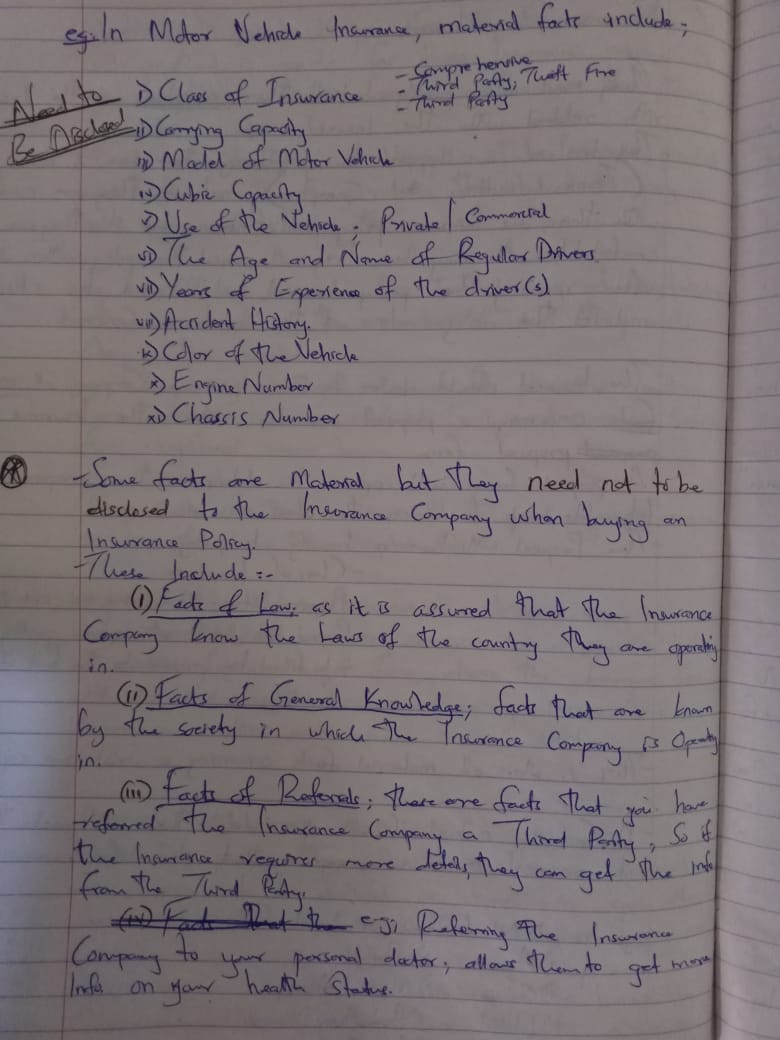 eg:In Motor Vehicle Insurance, material facts include;
Need to
Be Disclosed
i) Class of Insurance
- Comprehensive
- Third Party, Theft Fire
- Third Party
ii) Carrying Capacity
iii) Model of Motor Vehicle
iv) Cubic Capacity
v) Use of the Vehicle; Private / Commercial
vi) The Age and Name of Regular Drivers
vii) Years of Experience of the driver(s)
viii) Accident History.
ix) Color of the Vehicle
x) Engine Number
xi) Chassis Number
- Some facts are Material but they need not to be
disclosed to the Insurance Company when buying an
Insurance Policy.
- These Include :-
(i) Facts of Law; as it is assured that the Insurance
Company know the Laws of the country they are operating
in.
(ii) Facts of General Knowledge; facts that are known
by the society in which the Insurance Company is Operating
in.
(iii) Facts of Referrals; these are facts that you have
referred the Insurance Company a Third Party, So if
the Insurance requires more details, they can get the info
from the Third Party.
(iv) Facts that the e.g; Referring the Insurance
Company to your personal doctor, allows them to get more
Info. on your health Status.